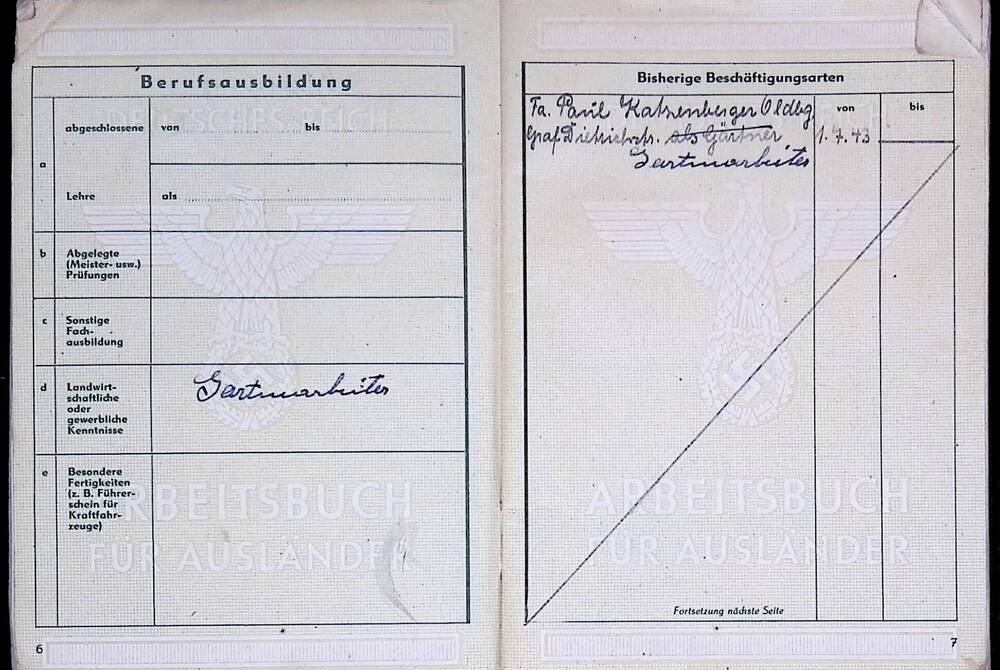 Berufsausbildung
DEUTSCHES REICH
a
abgeschlossene
von bis
Lehre
als
b
Abgelegte
(Meister- usw.)
Prüfungen
c
Sonstige
Fach-
ausbildung
d
Landwirt-
schaftliche
oder
gewerbliche
Kenntnisse
Gartenarbeiter
e
Besondere
Fertigkeiten
(z. B. Führer-
schein für
Kraftfahr-
zeuge)
ARBEITSBUCH
FÜR AUSLÄNDER
6
Bisherige Beschäftigungsarten
von bis
Fa. Paul Katzenberger Oldbg
Graf Dietrichstr. als Gärtner 1. 7. 43
Gartenarbeiter
ARBEITSBUCH
FÜR AUSLÄNDER
Fortsetzung nächste Seite
7